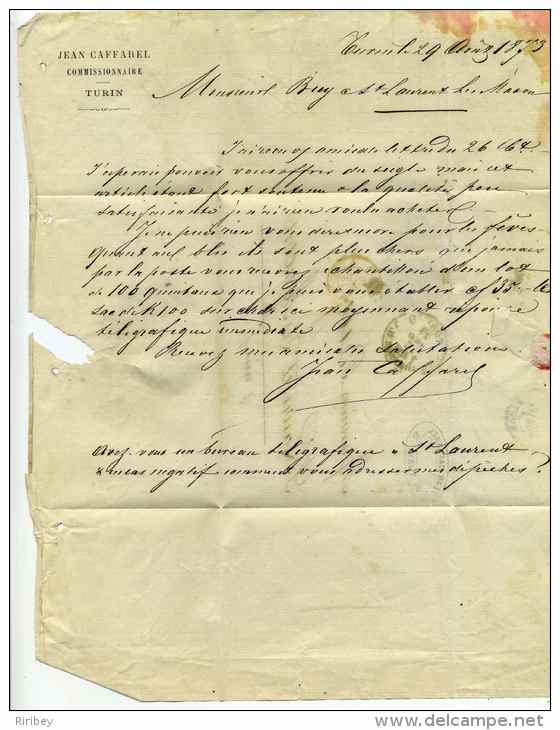 JEAN CAFFAREL
COMMISSIONNAIRE
TURIN
Turin le 29 Août 1873
Monsieur Buy à St Laurent les Macon
J'ai reçu vos amicale lettre du 26 Ct
J'esperai pouvoir vous offrir du seigle mais cet
article étant fort soutenu & la qualité peu
satisfaisante je n'ai rien voulu acheter
Je ne puis rien vous dire encore pour les fèves
quant aux blés ils sont plus chers que jamais
par la poste vous recevrez échantillon d'un lot
de 100 quintaux que je puis vous établir cf 35 le
sac de K 100 sur char moyennant reponse
télégrafique immediate
Recevez mes amicales salutations
Jean Caffarel
Avez vous un bureau télégrafique à St Laurent
& en cas negatif comment vous adresser mes dépêches?
Riribey
www.delcampe.net